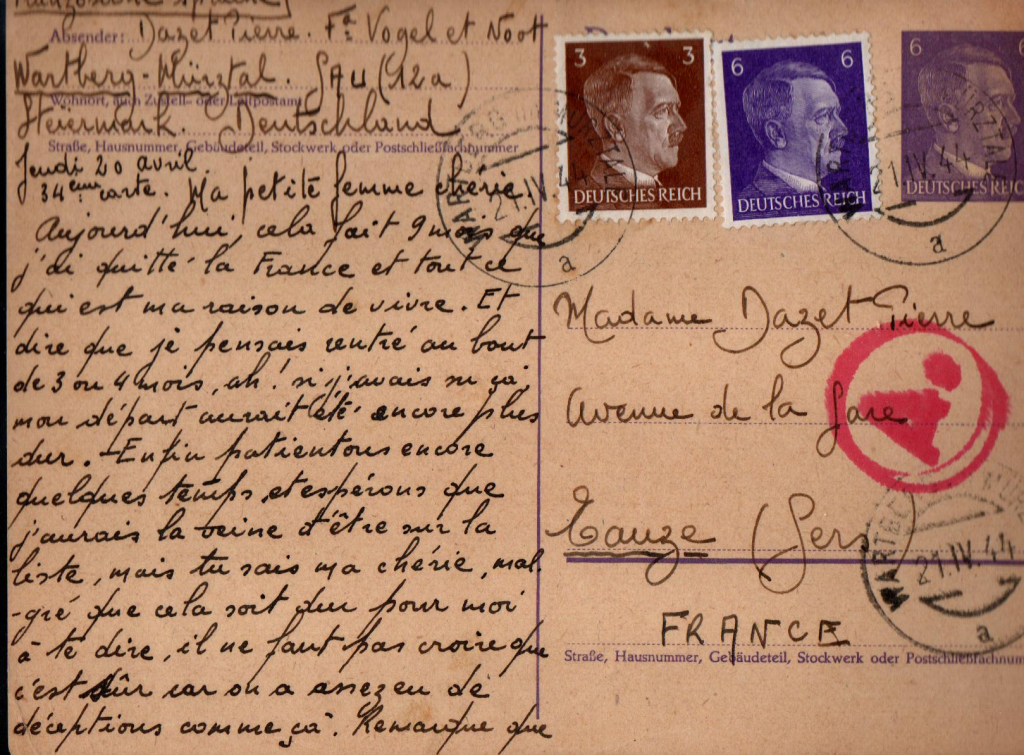 Französische Sprache
Absender: Dazet Pierre. Fa Vogel et Noot
Wartberg-Mürztal. GAU (12a)
Wohnort, auch Zustell- oder Leitpostamt
Steiermark. Deutschland
Straße, Hausnummer, Gebäudeteil, Stockwerk oder Postschließfachnummer
Jeudi 20 avril.
34ème carte. Ma petite femme chérie.
Aujourd'hui, cela fait 9 mois que
j'ai quitté la France et tout ce
qui est ma raison de vivre. Et
dire que je pensais rentré au bout
de 3 ou 4 mois, ah! si j'avais su ça,
mon départ aurait été encore plus
dur. - Enfin patientons encore
quelques temps, et espérons que
j'aurais la veine d'être sur la
liste, mais tu sais ma chérie, mal
-gré que cela soit dur pour moi
à te dire, il ne faut pas croire que
c'est sûr car on a assez eu de
déceptions comme ça. Remarque que
3 3
DEUTSCHES REICH
6 6
DEUTSCHES REICH
6
DEUTSCHES REICH
21.IV.44
a
21.IV.44
a
Madame Dazet Pierre
Avenue de la Gare
Eauze (Gers)
FRANCE
Straße, Hausnummer, Gebäudeteil, Stockwerk oder Postschließfachnum
21.IV.44
a